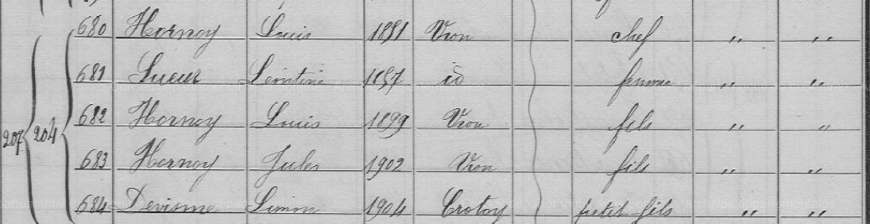 680 Hornoy Louis 1851 Vron chef " "
681 Sueur Léontine 1857 id femme " "
682 Hornoy Louis 1899 Vron fils " "
207 204 683 Hornoy Jules 1902 Vron fils " "
684 Devisme Simon 1904 Crotoy petit fils " "